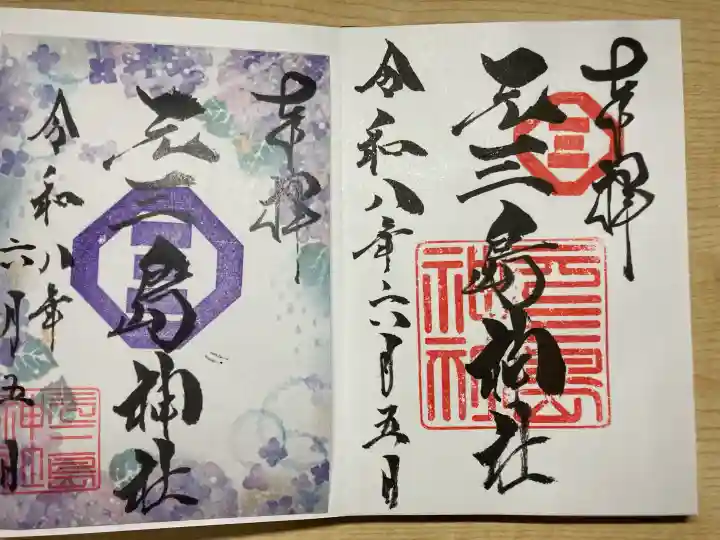 奉拝
元三島神社
令和八年六月五日
元三島神社
奉拝
元三島神社
令和八年
六月五日
元三島神社